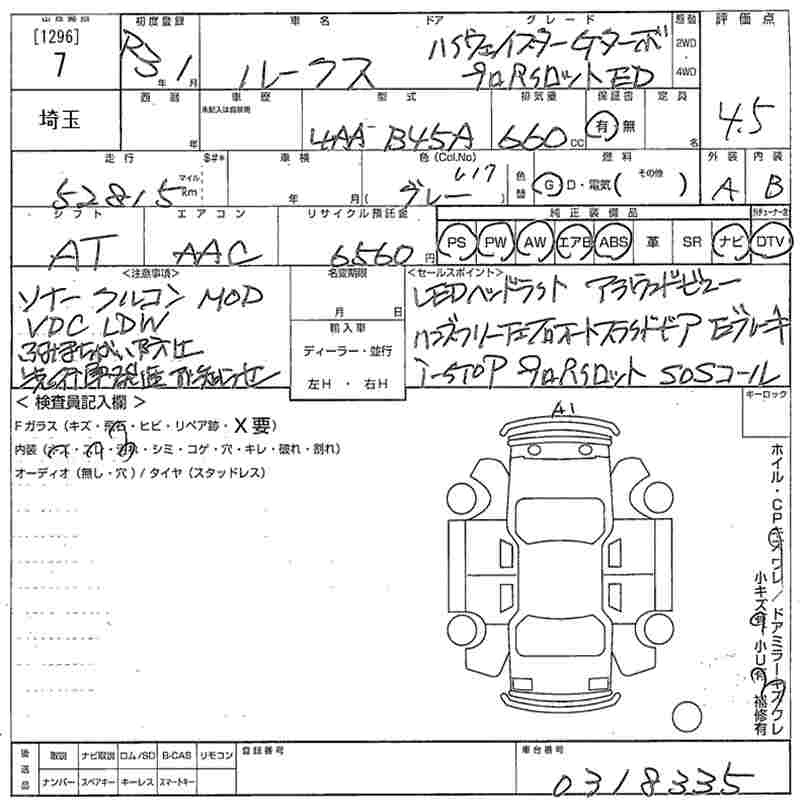 [1296]
7
初度登録
R3年1月
車名
ルークス
ドア グレード
ハイウェイスターGターボ
プロパイロットED
2WD
4WD
評価点
4.5
埼玉
西暦
年
車歴
未記入は自家用
型式
4AA-B45A
排気量
660cc
保証書
有・無
定員
名
走行
52815
マイル
Km
車検
年 月
色(Col.No)
グレー
色替
燃料
G・D・電気( その他 )
外装
A
内装
B
シフト
AT
エアコン
AAC
リサイクル預託金
6560円
純正装備品
PS PW AW エアB ABS 革 SR ナビ DTV
<注意事項>
ソナー クルコン MOD
VDC LDW
ふみまちがい防止
名変期限
月 日
輸入車
ディーラー・並行
左H・右H
<セールスポイント>
LEDヘッドライト アラウンドビュー
ハンズフリー
i-STOP プロパイロット SOSコール
<検査員記入欄>
Fガラス(キズ・飛石・ヒビ・リペア跡・X要)
内装(・シミ・コゲ・穴・キレ・破れ・割れ)
オーディオ(無し・穴)/タイヤ(スタッドレス)
A1
キーロック
ホイル・CPキズワレ/ドアミラーキズワレ
小キズ有 小U有 補修有
後送品
取説 ナビ取説 ロム/SD B-CAS リモコン
ナンバー スペアキー キーレス スマートキー
登録番号
車台番号
0318335